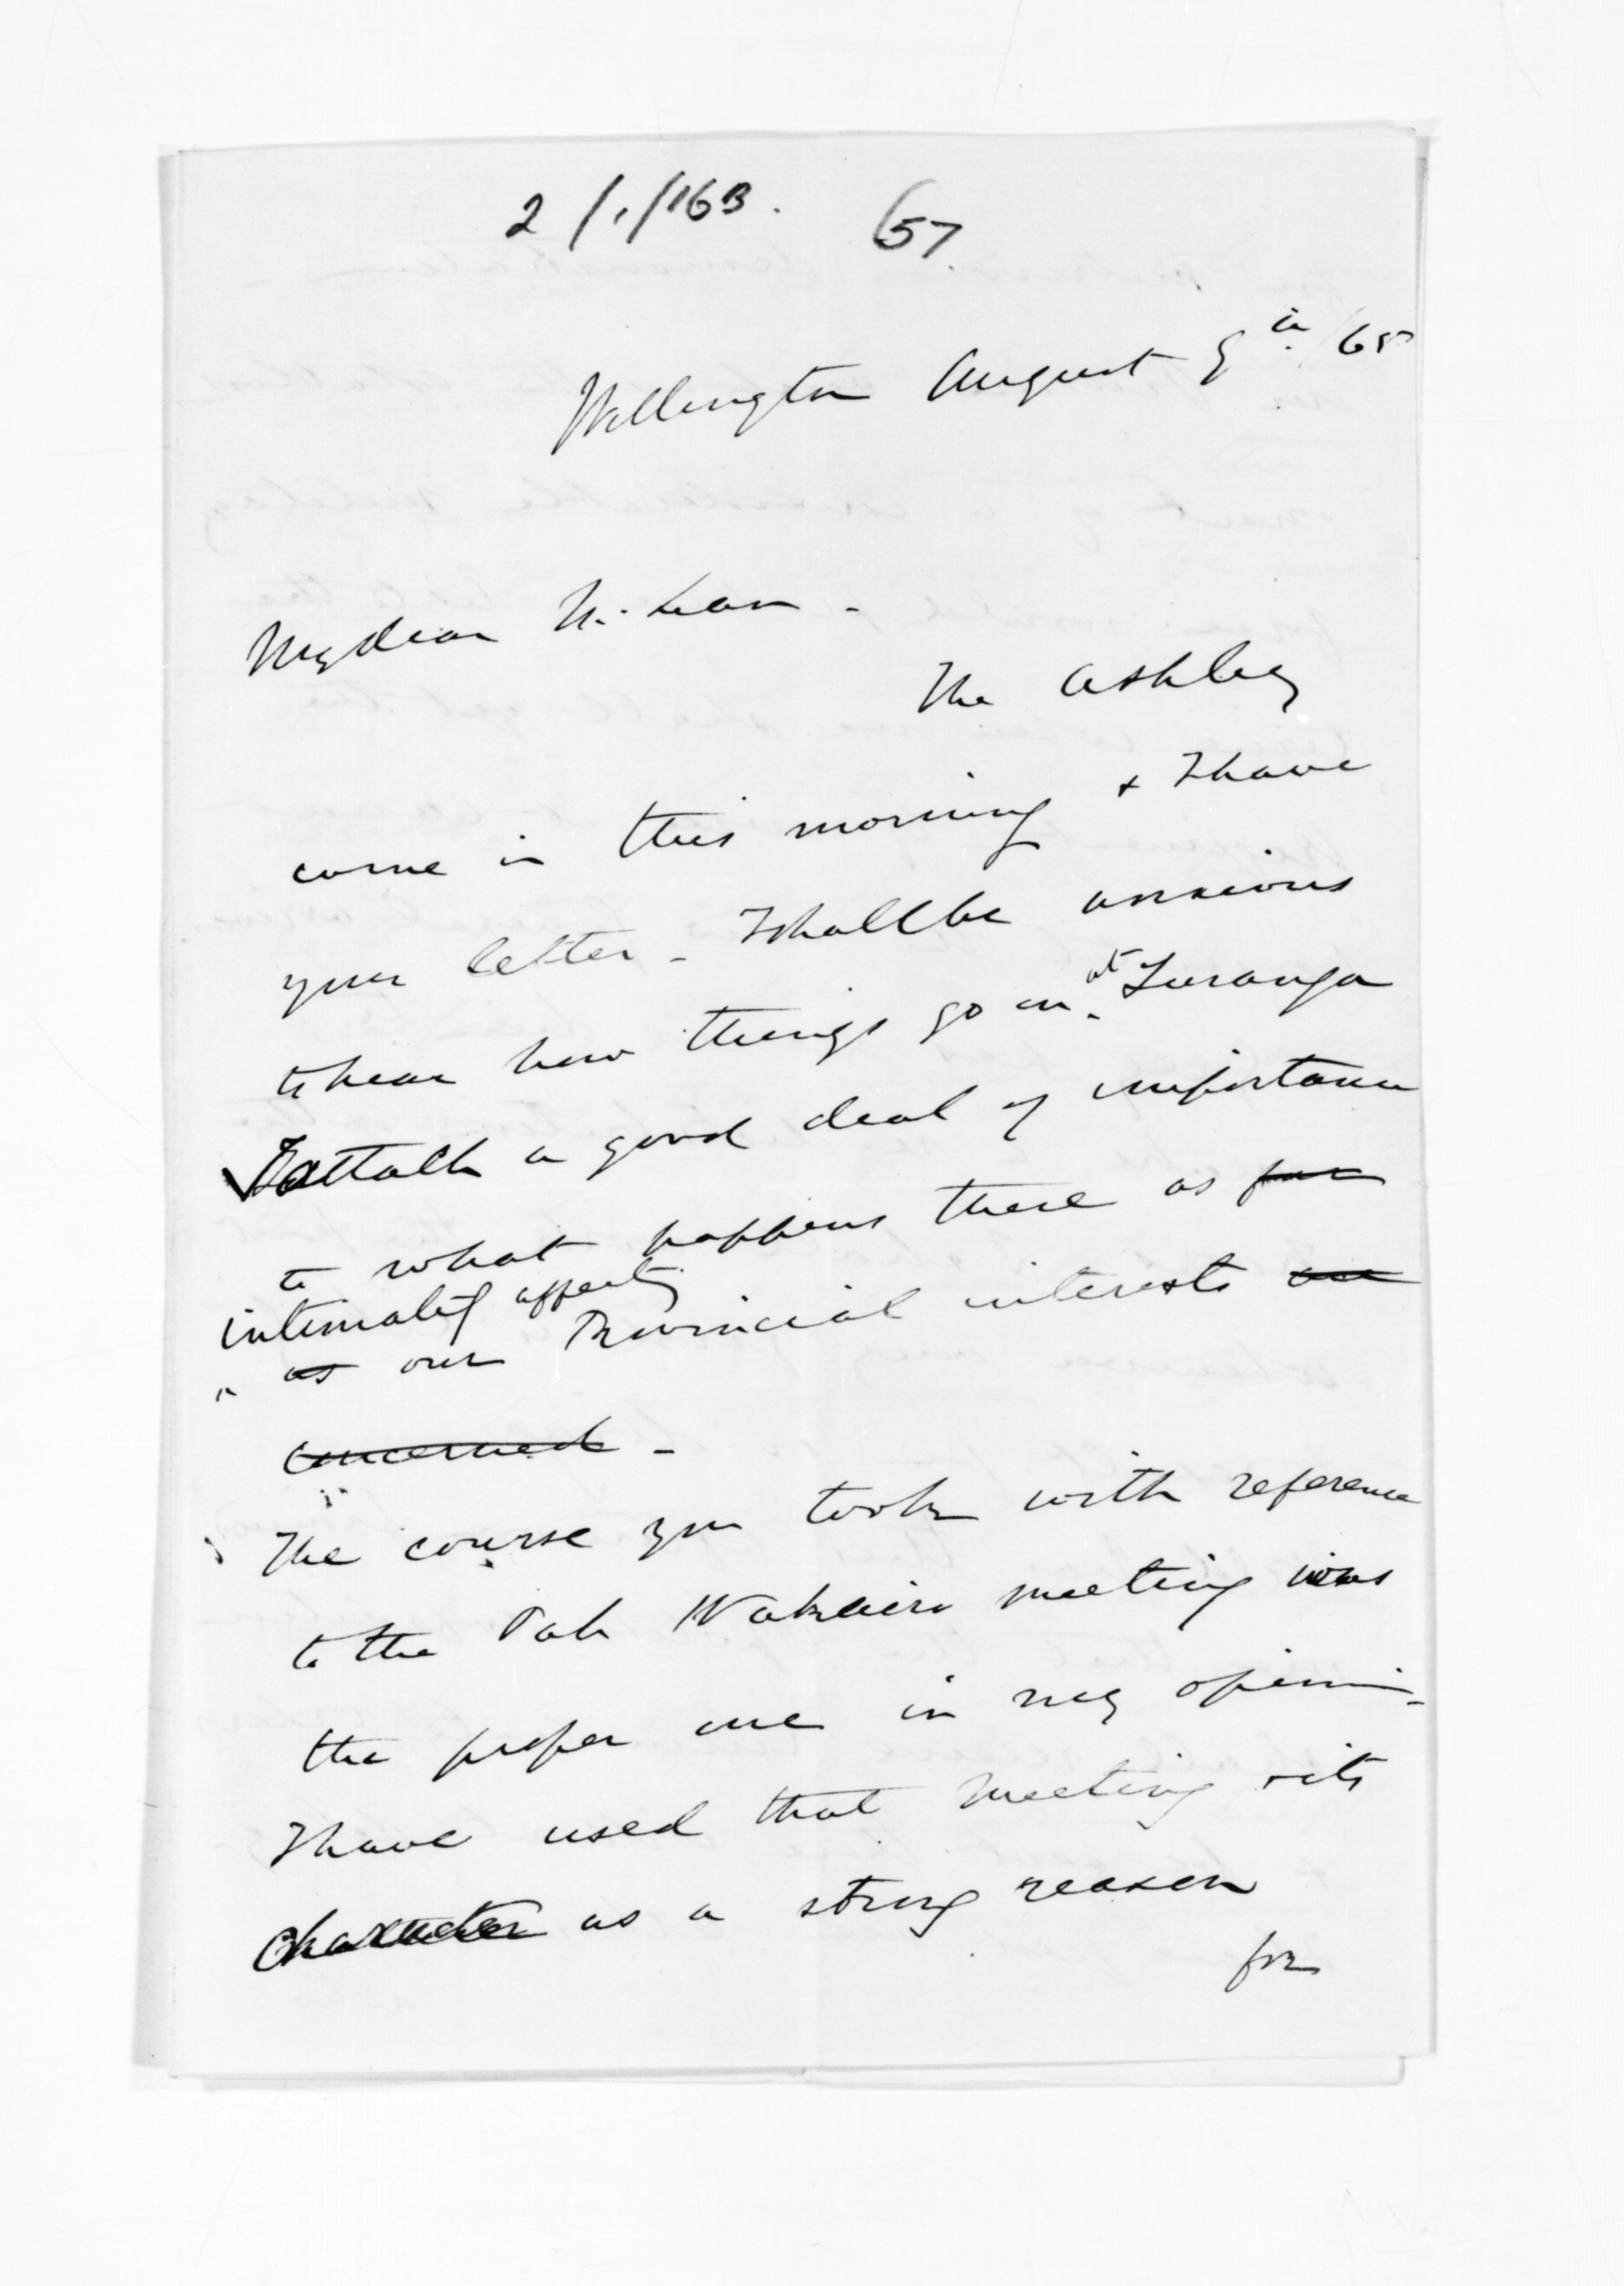 2/1/16B. 57.
Wellington August 9th /65
My dear McLean -
The Ashley
came in this morning & I have
your letter - I shall be anxious
to hear how things go on at Turanga
I attach a good deal of importance
to what happens there as
intimately affecting
as our Provincial interests are
concerned -
The course you took with reference
to the Pah Wakairo meeting was
the proper one in my opinion -
I have used that meeting & its
character as a strong reason
for